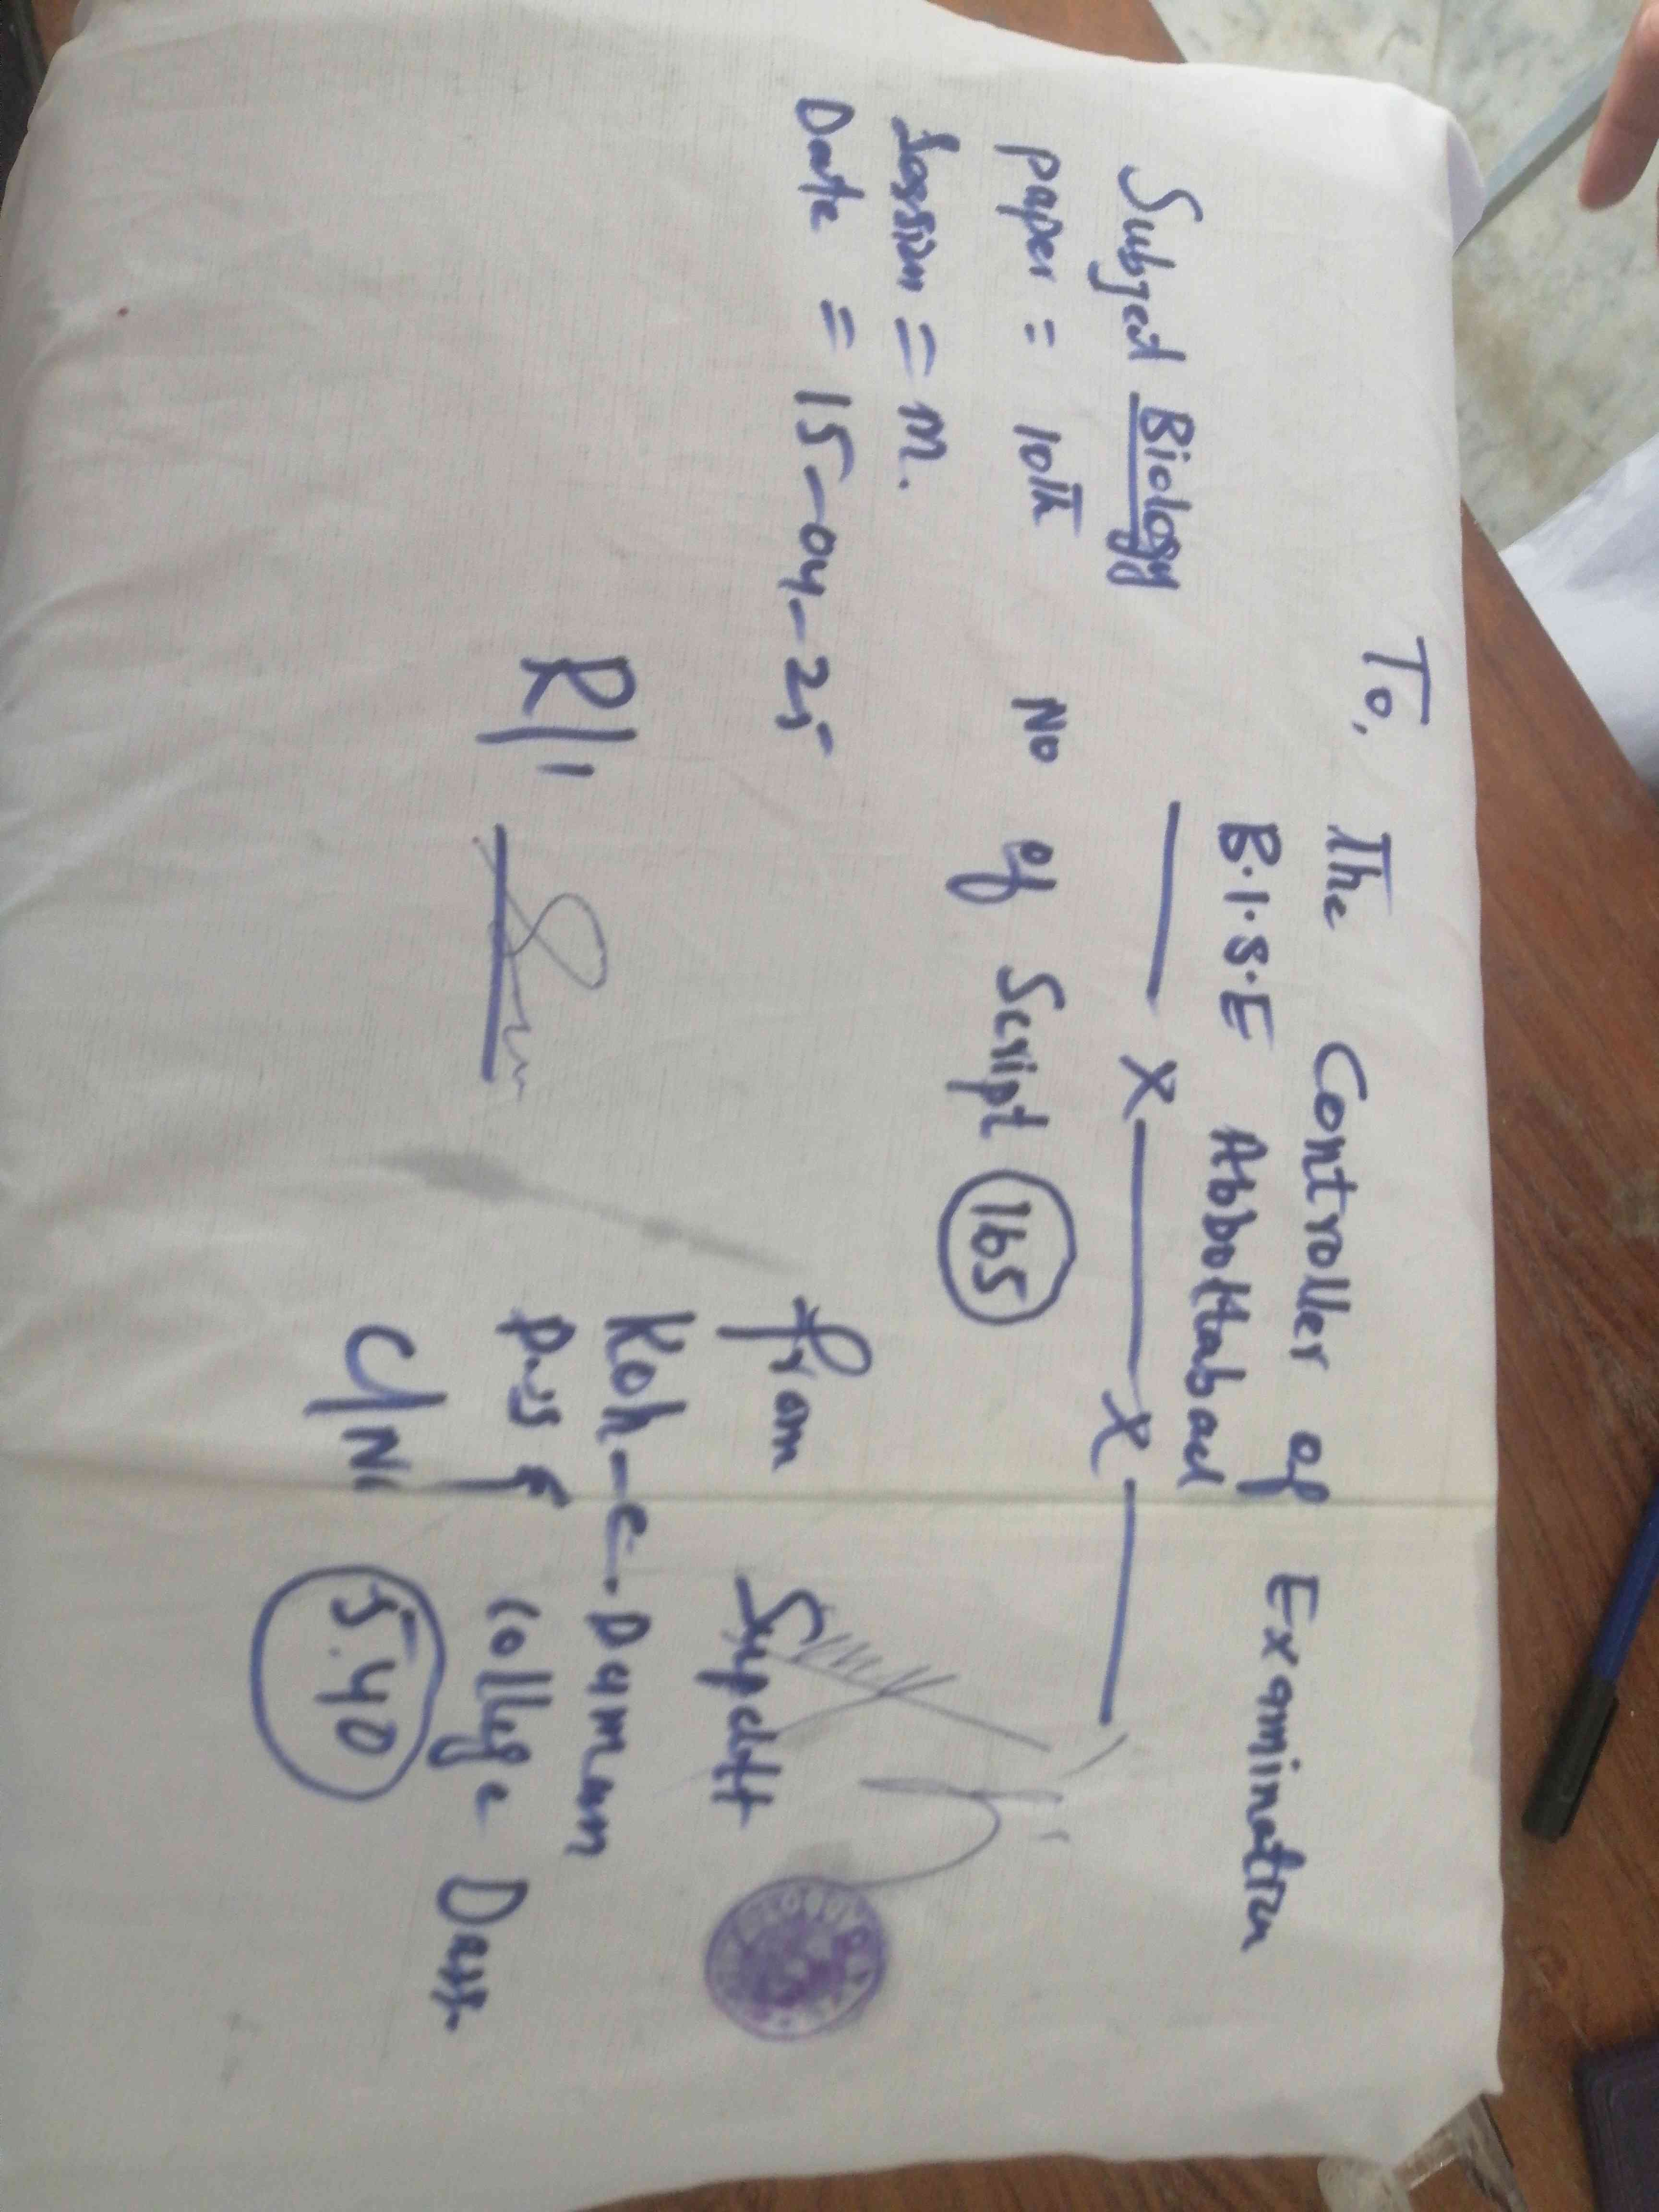 To, The Controller of Examination
B.I.S.E Abbottabad
Subject Biology
— X — X —
paper = 10th No of Script 165
Session = M.
Date = 15-04-25
R/I
from Supdtt
Koh-e-Damman
P.S & College Dassu
C/N 540